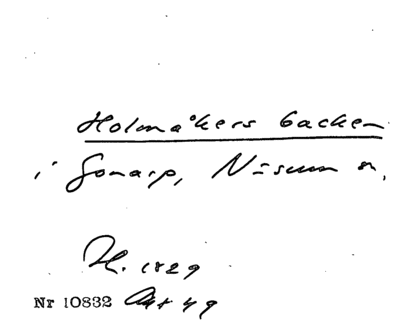 Holmåkers backen
i Gonarp, Näsum sn.
H. 1829
Nr 10832 Akt 49